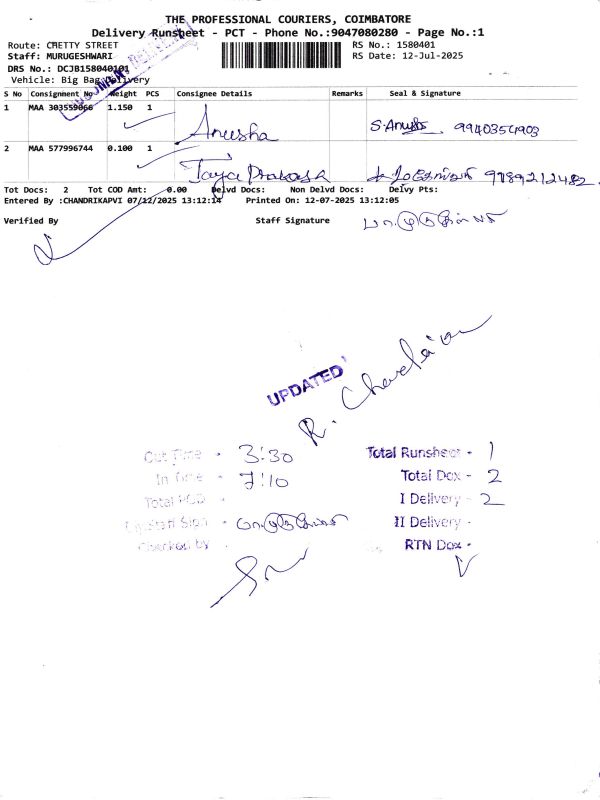 THE PROFESSIONAL COURIERS, COIMBATORE
Delivery Runsheet - PCT - Phone No.:9047080280 - Page No.:1
Route: CHETTY STREET RS No.: 1580401
Staff: MURUGESHWARI RS Date: 12-Jul-2025
DRS No.: DCJB158040101
Vehicle: Big Bag Delivery
S No Consignment No Weight PCS Consignee Details Remarks Seal & Signature
1 MAA 303559066 1.150 1 Anusha S.Anusha 9940354903
2 MAA 577996744 0.100 1 Jaya Prakash 9789212482
Tot Docs: 2 Tot COD Amt: 0.00 Delvd Docs: Non Delvd Docs: Delvy Pts:
Entered By :CHANDRIKAPVI 07/12/2025 13:12:14 Printed On: 12-07-2025 13:12:05
Verified By Staff Signature
UPDATED
Out Time - 3:30 Total Runsheet - 1
In Time - 7:10 Total Dox - 2
Total POD - I Delivery - 2
Sign - II Delivery -
Checked by - RTN Dox -